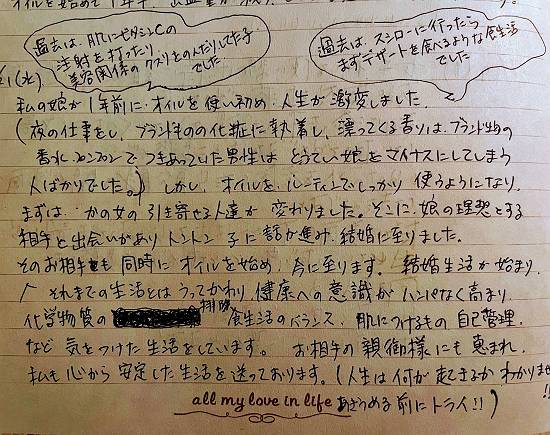 過去は、肌にビタミンCの
注射を打ったり
美容関係のクスリをのんだりしてた子
でした
過去は、スシローに行ったら
まずデザートを食べるような食生活
でした
(水)
私の娘が1年前に、オイルを使い初め、人生が激変しました。
(夜の仕事をし、ブランドものの化粧に執着し、漂ってくる香りは、ブランド物の
香水 プンプンで つきあっていた男性は どうてい娘をマイナスにしてしまう
人ばかりでした。) しかし、オイルを、ルーティンでしっかり 使うようになり、
まずは、かの女の引き寄せる人達が 変わりました。そこに、娘の理想とする
相手と出会いがあり トントン子に 話が進み、結婚に至りました。
そのお相手も 同時に オイルを始め、今に至ります。 結婚生活が始まり、
それまでの生活とは うってかわり、健康への意識が ハンパなく高まり
化学物質の 排除 食生活のバランス、肌につけるもの 自己管理、
など 気をつけた生活をしています。 お相手の親御様にも 恵まれ、
私も 心から 安定した生活を送っております。(人生は何が起きるか わかりませ
all my love in life あきらめる前にトライ!!)